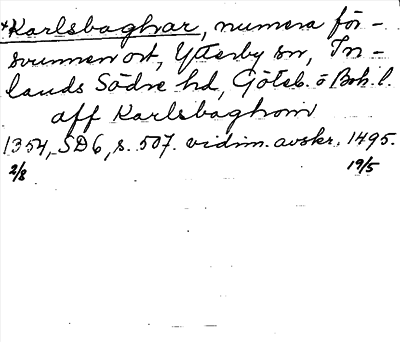 *Karlsbaghar, numera för-
svunnen ort, Ytterby sn, In-
lands Södre hd, Göteb. o Boh. l.
aff Karlsbaghom
1354, SD6, s. 507. vidim. avskr. 1495.
2/8 19/5